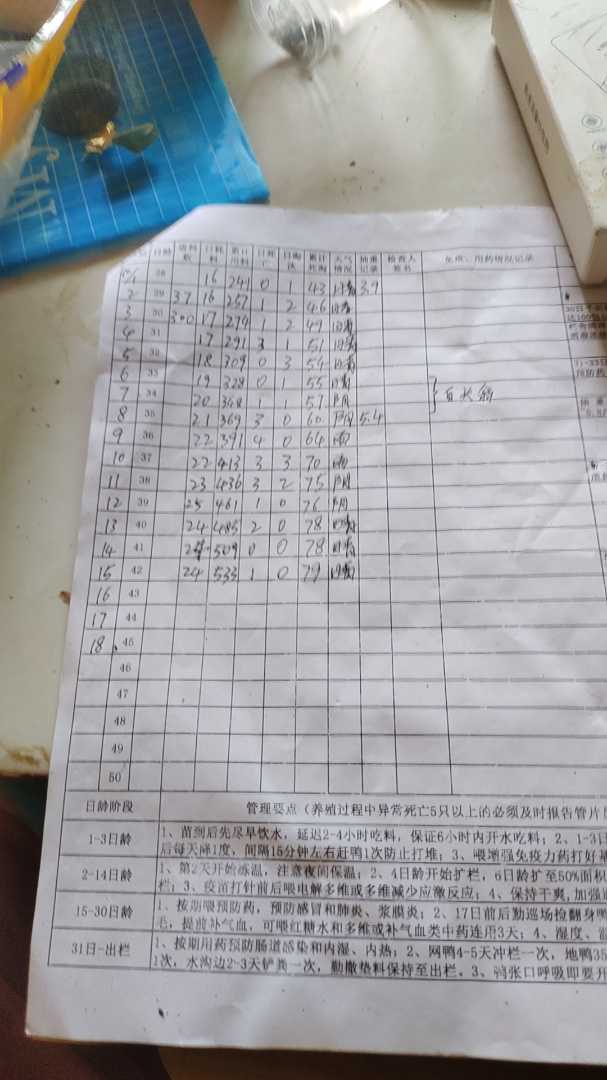 日龄 日耗料 累计用料 日死亡 日淘汰 累计死淘 天气情况 抽重记录 检查人签名 免疫、用药情况记录
28 16 241 0 1 43 晴 3.9
2 29 37 16 257 1 2 46 晴
3 30 300 17 274 1 2 49 晴
4 31 17 291 3 1 51 晴
5 32 18 309 0 3 54 晴
6 33 19 328 0 1 55 晴
7 34 20 348 1 1 57 阴
8 35 21 369 3 0 60 阴 5.4
9 36 22 391 4 0 64 雨
10 37 22 413 3 3 70 雨
11 38 23 436 3 2 75 阴
12 39 25 461 1 0 76 阴
13 40 24 485 2 0 78 晴
14 41 24 509 0 0 78 晴
15 42 24 533 1 0 79 晴
16 43
17 44
18 45
46
47
48
49
50
日龄阶段 管理要点（养殖过程中异常死亡5只以上的必须及时报告管片
1-3日龄 1、苗到后先尽早饮水，延迟2-4小时吃料，保证6小时内开水吃料；2、1-3日
后每天降1度，间隔15分钟左右赶鸭1次防止打堆；3、喂增强免疫力药打好基
2-14日龄 1、第2天开始冻温，注意夜间保温；2、4日龄开始扩栏，6日龄扩至50%面积
栏；3、疫苗打针前后喂电解多维或多维减少应激反应；4、保持干爽，加强
15-30日龄 1、按期喂预防药，预防感冒和肺炎、浆膜炎；2、17日前后勤巡场检翻身
毛，提前补气血，可喂红糖水和多维或补气血类中药连用3天；4、湿度、
31日-出栏 1、按期用药预防肠道感染和内湿、内热；2、网鸭4-5天冲栏一次，地鸭35
1次，水沟边2-3天铲粪一次，勤撒垫料保持至出栏。3、鸭张口呼吸即要开